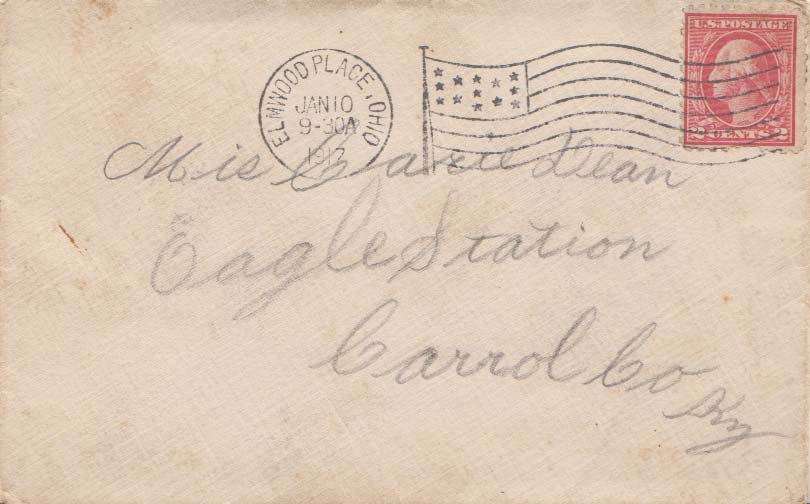 ELMWOOD PLACE, OHIO
JAN 10
9-30A
1917
U.S. POSTAGE
2 CENTS 2
Mis Carie Dean
Eagle Station
Carrol Co
Ky